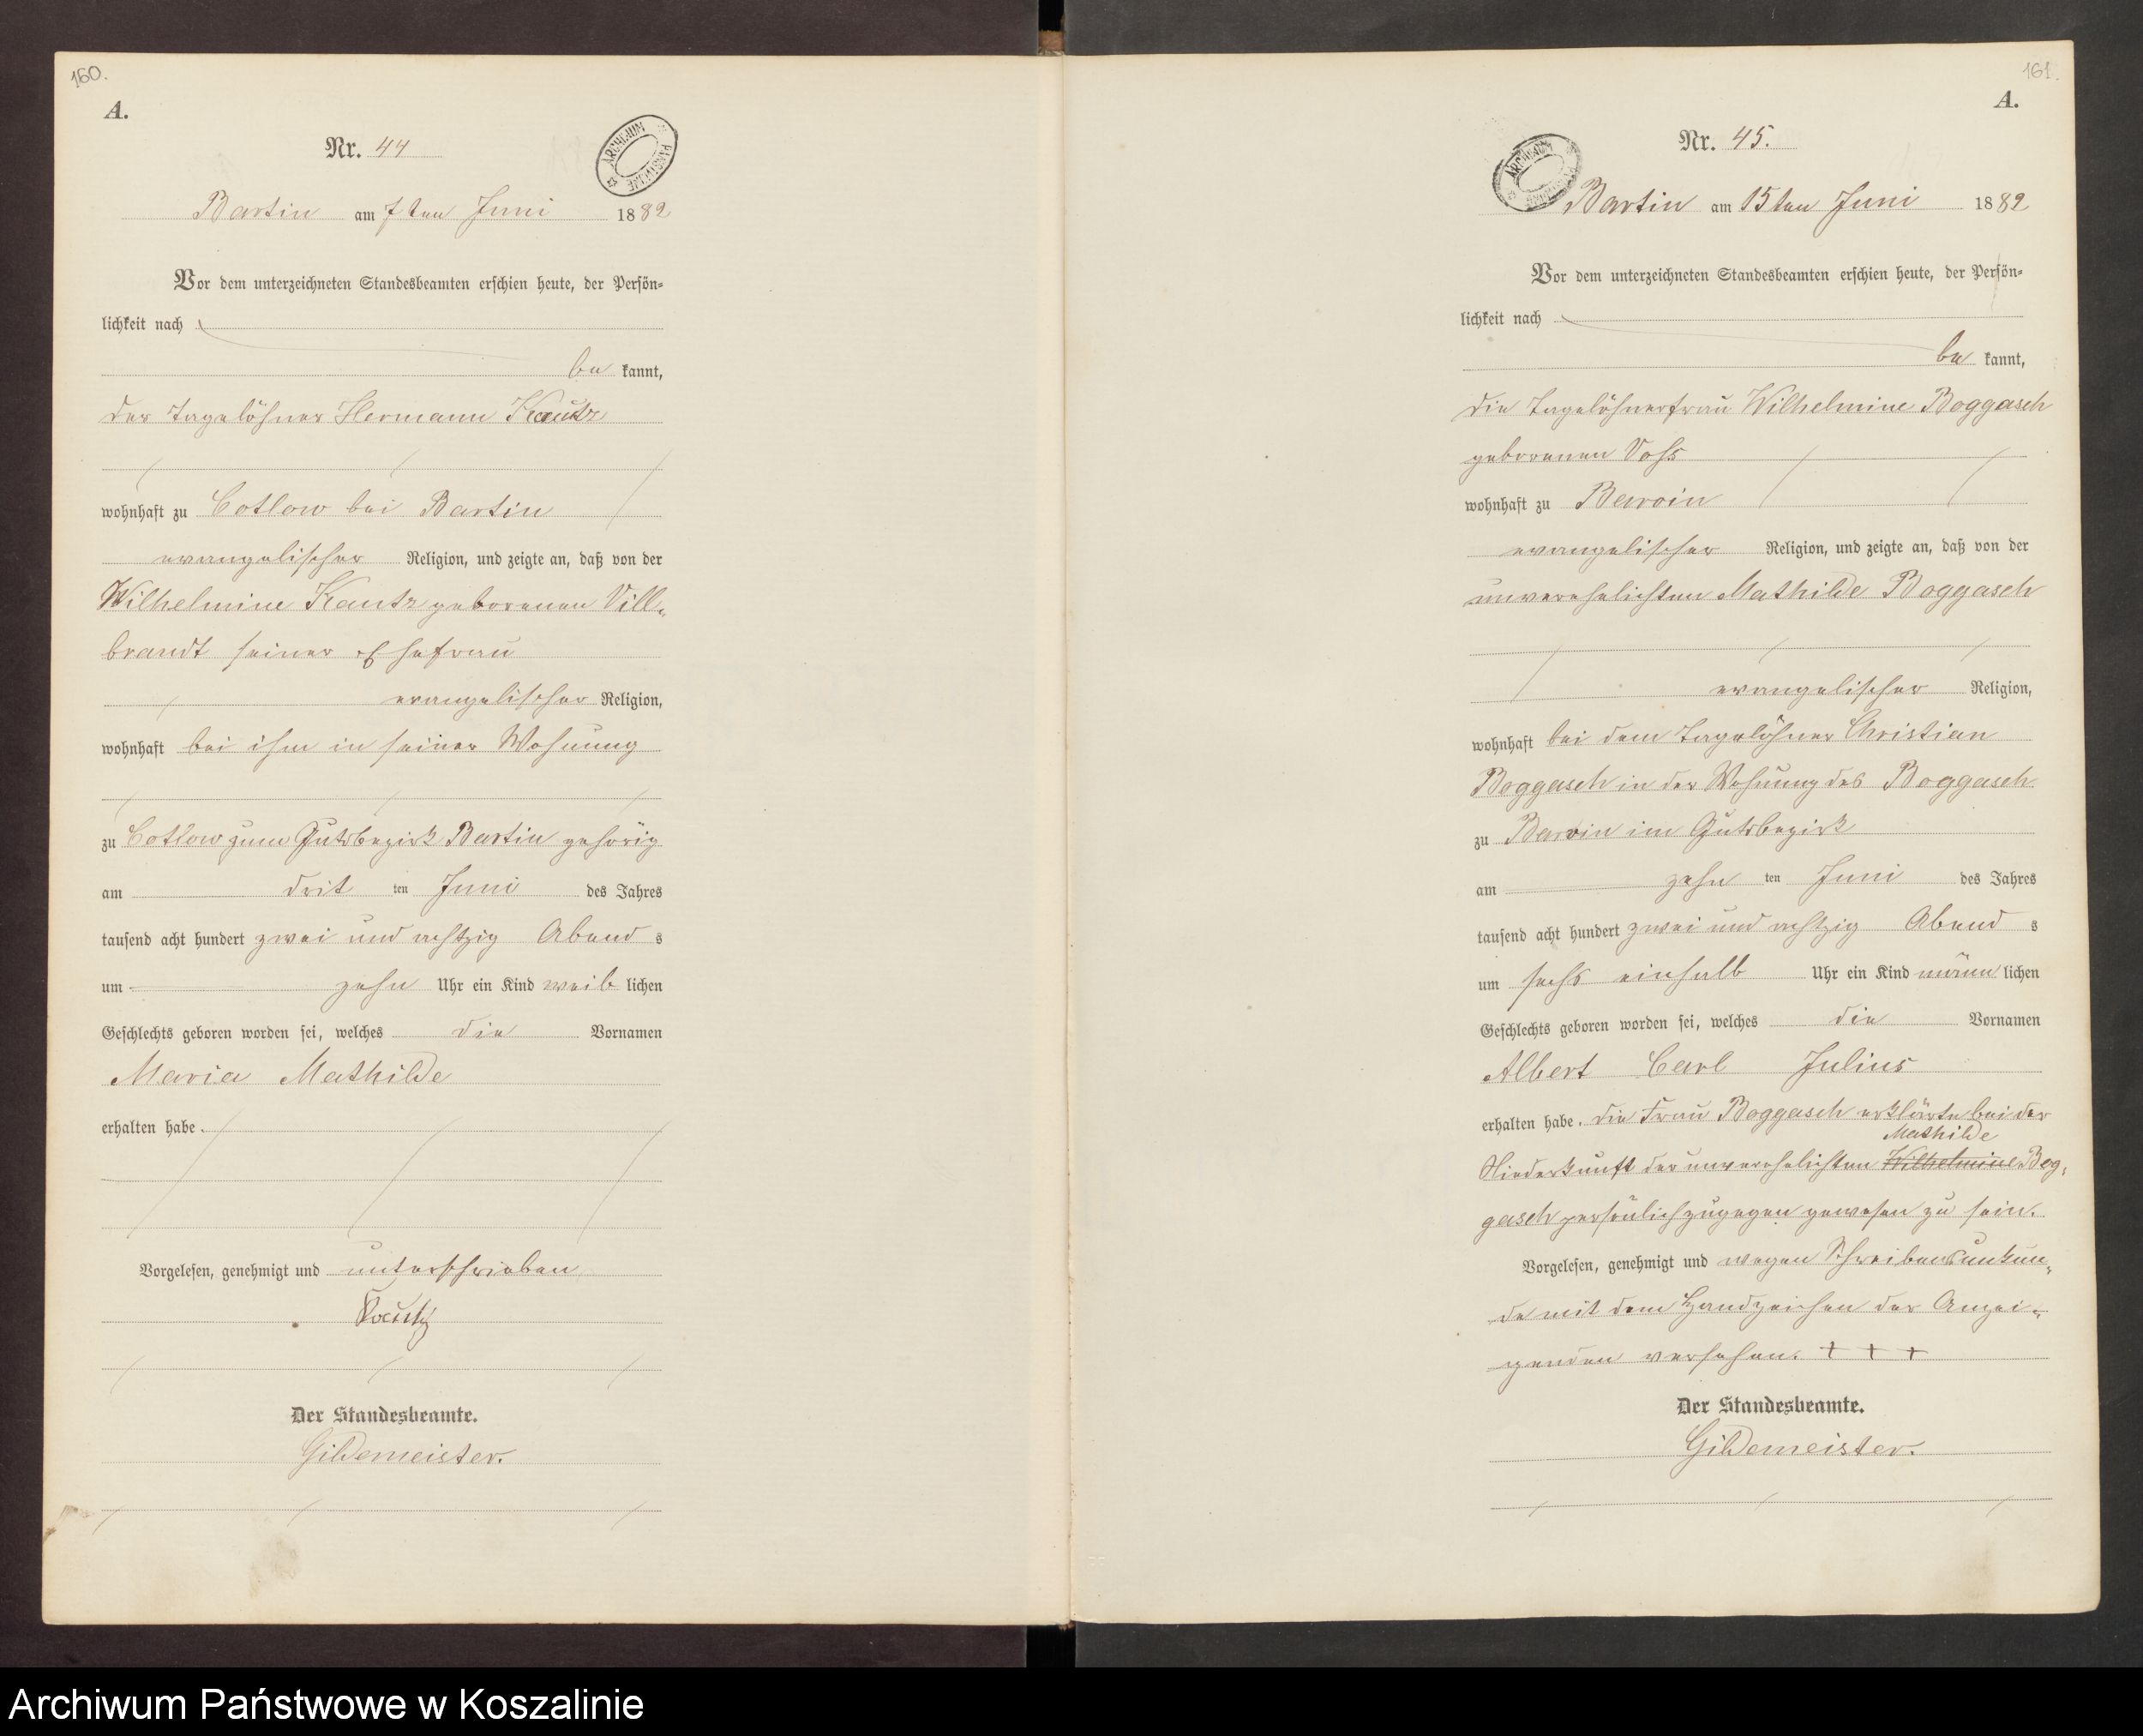 160.
A.
Nr. 44
ARCHIWUM PAŃSTWOWE
Bartin am 7ten Juni 1882
Vor dem unterzeichneten Standesbeamten erschien heute, der Persön-
lichkeit nach
be kannt,
der Tagelöhner Hermann Kautz
wohnhaft zu Cotlow bei Bartin
evangelischer Religion, und zeigte an, daß von der
Wilhelmine Kautz geborenen Vill-
brandt seiner Ehefrau
evangelischer Religion,
wohnhaft bei ihm in seiner Wohnung
zu Cotlow zum Gutsbezirk Bartin gehörig
am drit ten Juni des Jahres
tausend acht hundert zwei und achtzig Abend s
um zehn Uhr ein Kind weib lichen
Geschlechts geboren worden sei, welches die Vornamen
Maria Mathilde
erhalten habe.
Vorgelesen, genehmigt und unterschrieben
Kautz
Der Standesbeamte.
Gildemeister.
161.
A.
Nr. 45.
ARCHIWUM PAŃSTWOWE
Bartin am 15ten Juni 1882
Vor dem unterzeichneten Standesbeamten erschien heute, der Persön-
lichkeit nach
be kannt,
die Tagelöhnerfrau Wilhelmine Boggasch
geborenen Voß
wohnhaft zu Barvin
evangelischer Religion, und zeigte an, daß von der
unverehelichten Mathilde Boggasch
evangelischer Religion,
wohnhaft bei dem Tagelöhner Christian
Boggasch in der Wohnung des Boggasch
zu Barvin im Gutsbezirk
am zehn ten Juni des Jahres
tausend acht hundert zwei und achtzig Abend s
um sechs einhalb Uhr ein Kind männ lichen
Geschlechts geboren worden sei, welches die Vornamen
Albert Carl Julius
erhalten habe. die Frau Boggasch erklärte bei der
Mathilde
Niederkunft der unverehelichten Wilhelmine Bog-
gasch persönlich zugegen gewesen zu sein.
Vorgelesen, genehmigt und wegen Schreibensunkun-
de mit dem Handzeichen der Anzei-
genden versehen. + + +
Der Standesbeamte.
Gildemeister.
Archiwum Państwowe w Koszalinie